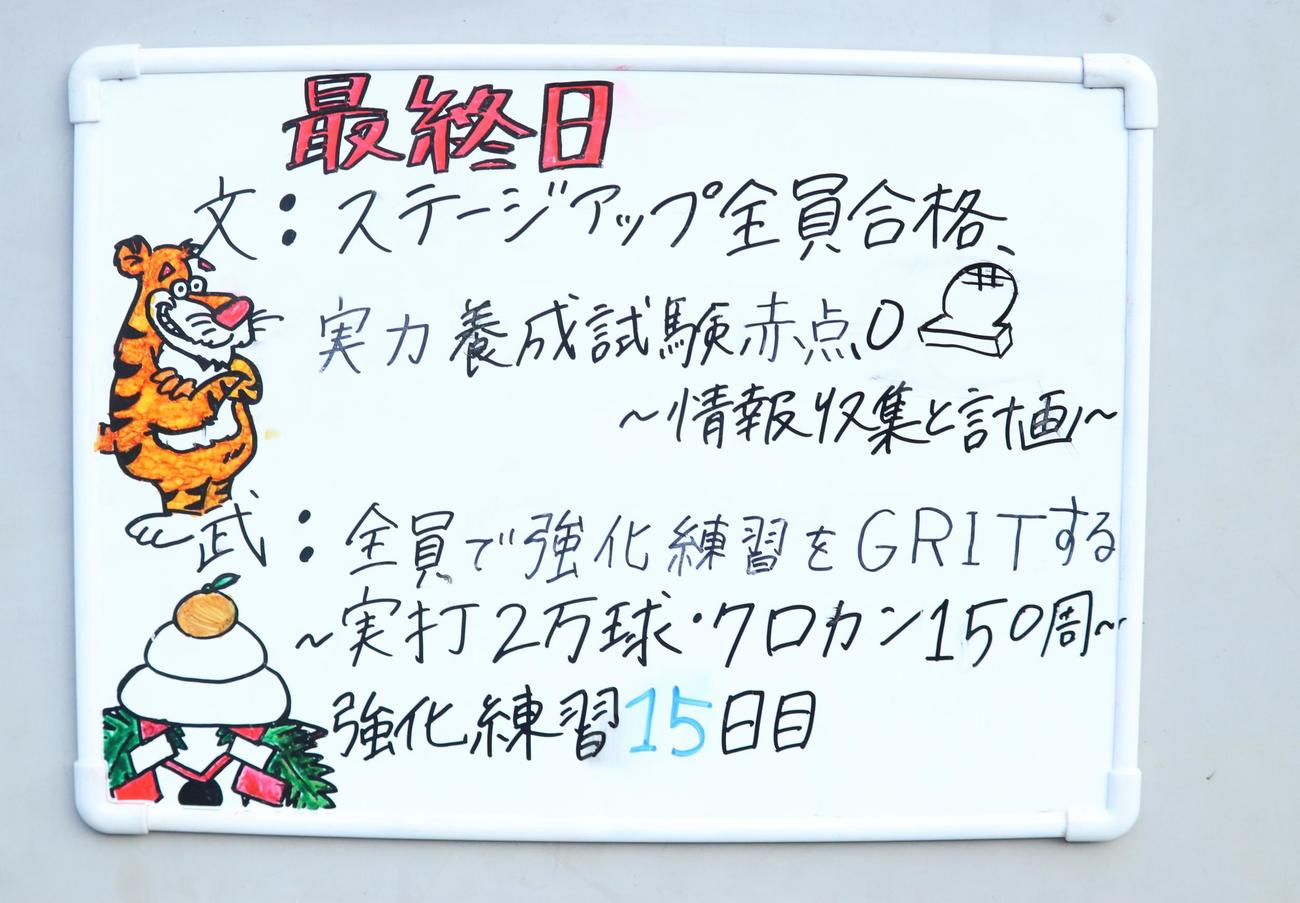 最終日
文：ステージアップ全員合格、
実力養成試験赤点0
～情報収集と計画～
武：全員で強化練習をGRITする
～実打2万球・クロカン150周～
強化練習15日目